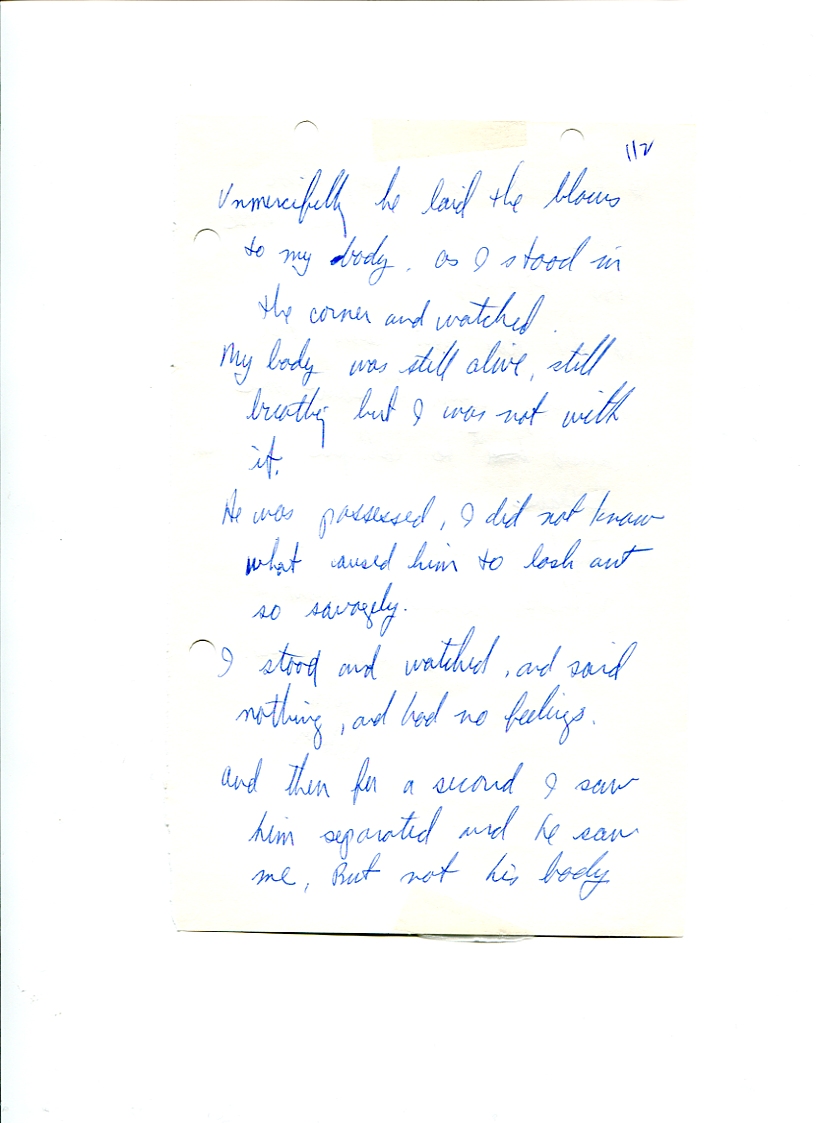 1/2
Unmercifully he laid the blows
to my body. as I stood in
the corner and watched.
My body was still alive, still
breathing but I was not with
it.
He was possessed, I did not know
what caused him to lash out
so savagely.
I stood and watched, and said
nothing, and had no feelings.
and then for a second I saw
him separated and he saw
me, But not his body